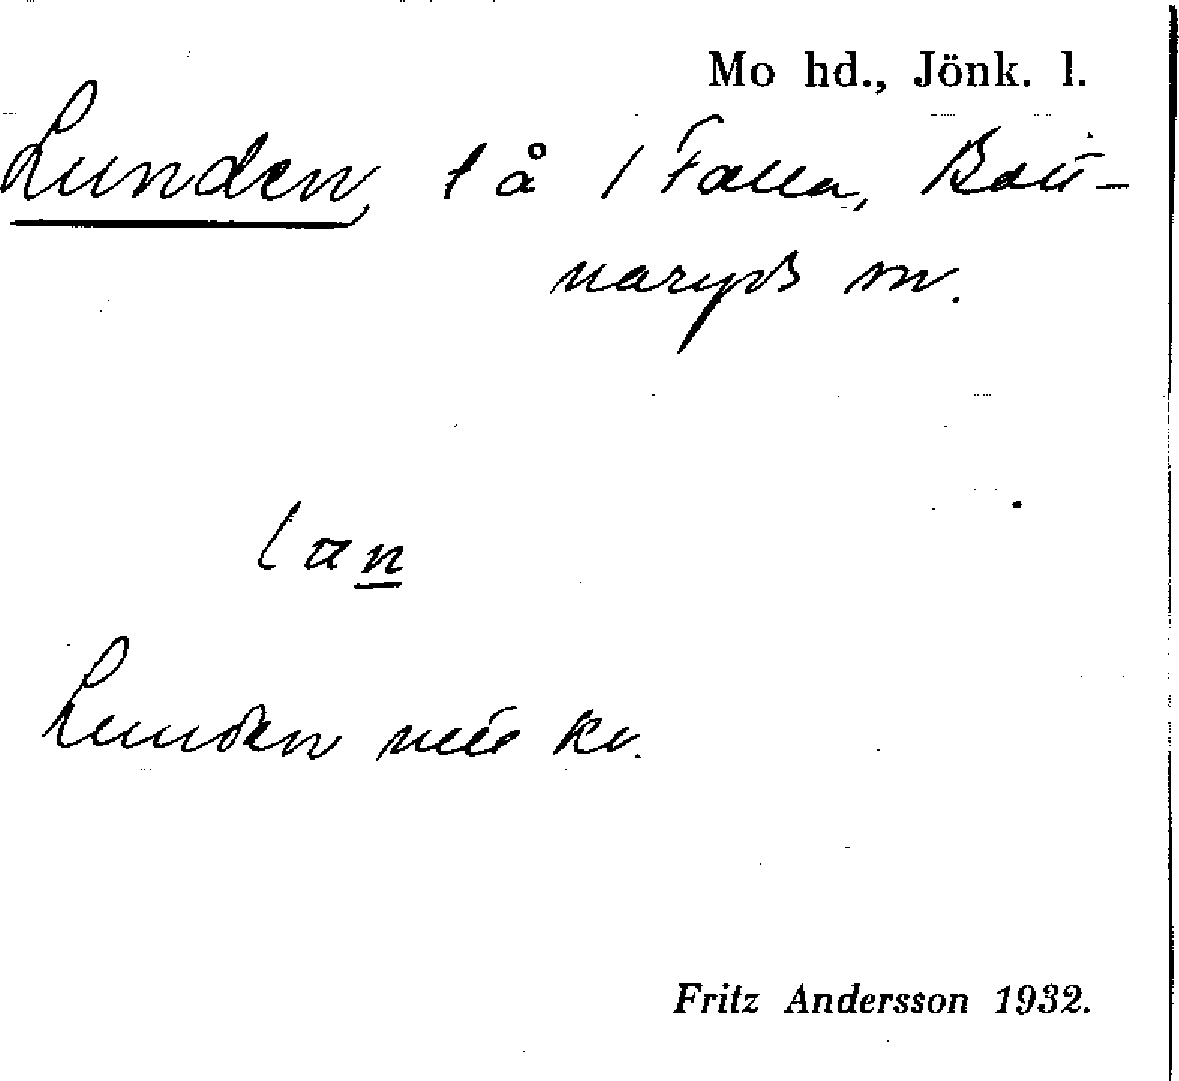 Mo hd., Jönk. l.
Lunden, tå i Falla, Bott-
naryds sn.
Lunden
Fritz Andersson 1932.